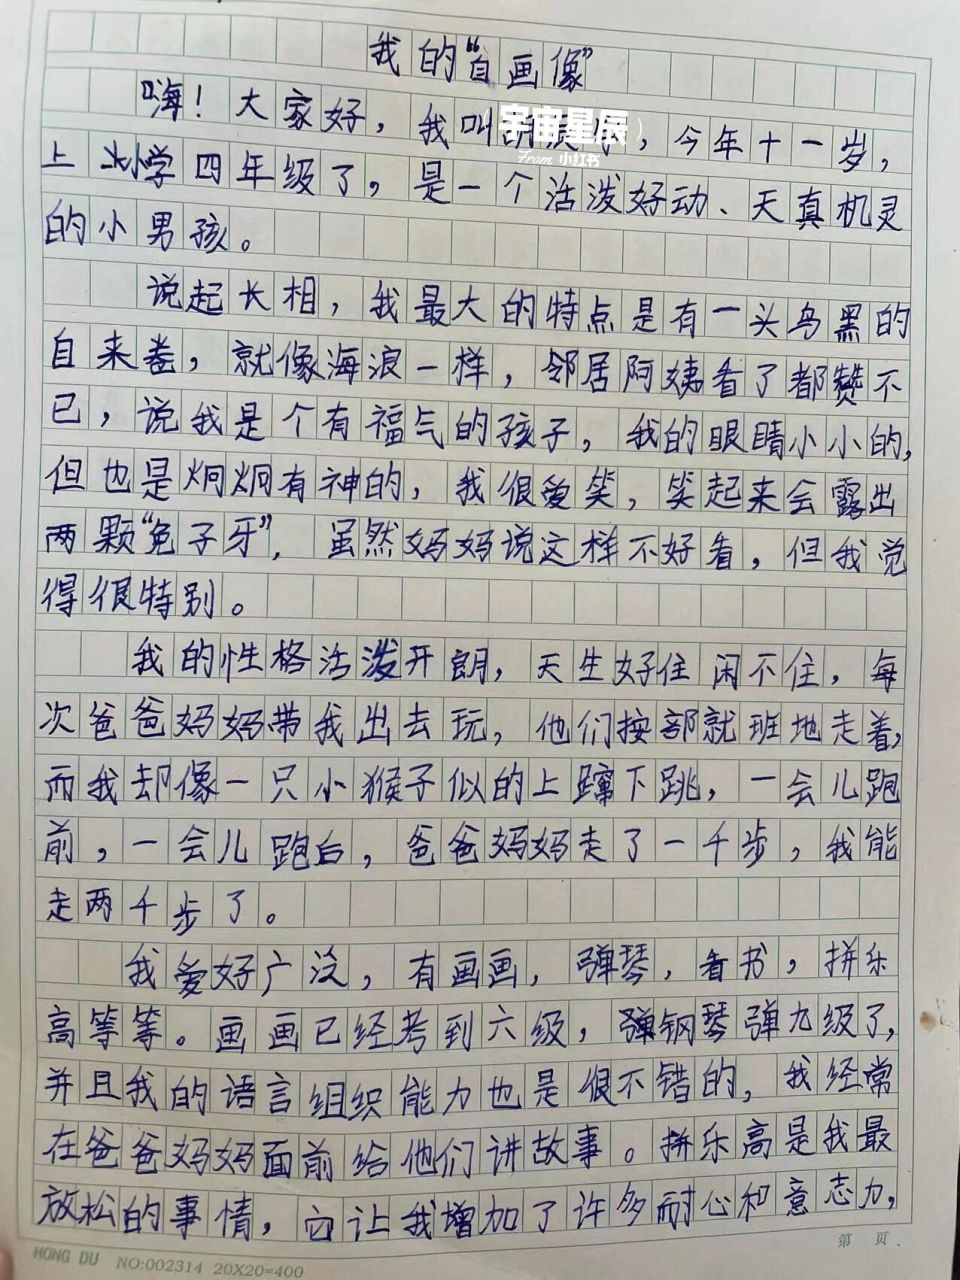 我的“自画像”
嗨！大家好，我叫，今年十一岁，
宇宙星辰
From 小红书
上小学四年级了，是一个活泼好动、天真机灵
的小男孩。
说起长相，我最大的特点是有一头乌黑的
自来卷，就像海浪一样，邻居阿姨看了都赞不
已，说我是个有福气的孩子，我的眼睛小小的，
但也是炯炯有神的，我很爱笑，笑起来会露出
两颗“兔子牙”，虽然妈妈说这样不好看，但我觉
得很特别。
我的性格活泼开朗，天生好住闲不住，每
次爸爸妈妈带我出去玩，他们按部就班地走着，
而我却像一只小猴子似的上蹿下跳，一会儿跑
前，一会儿跑后，爸爸妈妈走了一千步，我能
走两千步了。
我爱好广泛，有画画，弹琴，看书，拼乐
高等等。画画已经考到六级，弹钢琴弹九级了，
并且我的语言组织能力也是很不错的，我经常
在爸爸妈妈面前给他们讲故事。拼乐高是我最
放松的事情，它让我增加了许多耐心和意志力，
第 页
HONG DU NO:002314 20X20=400